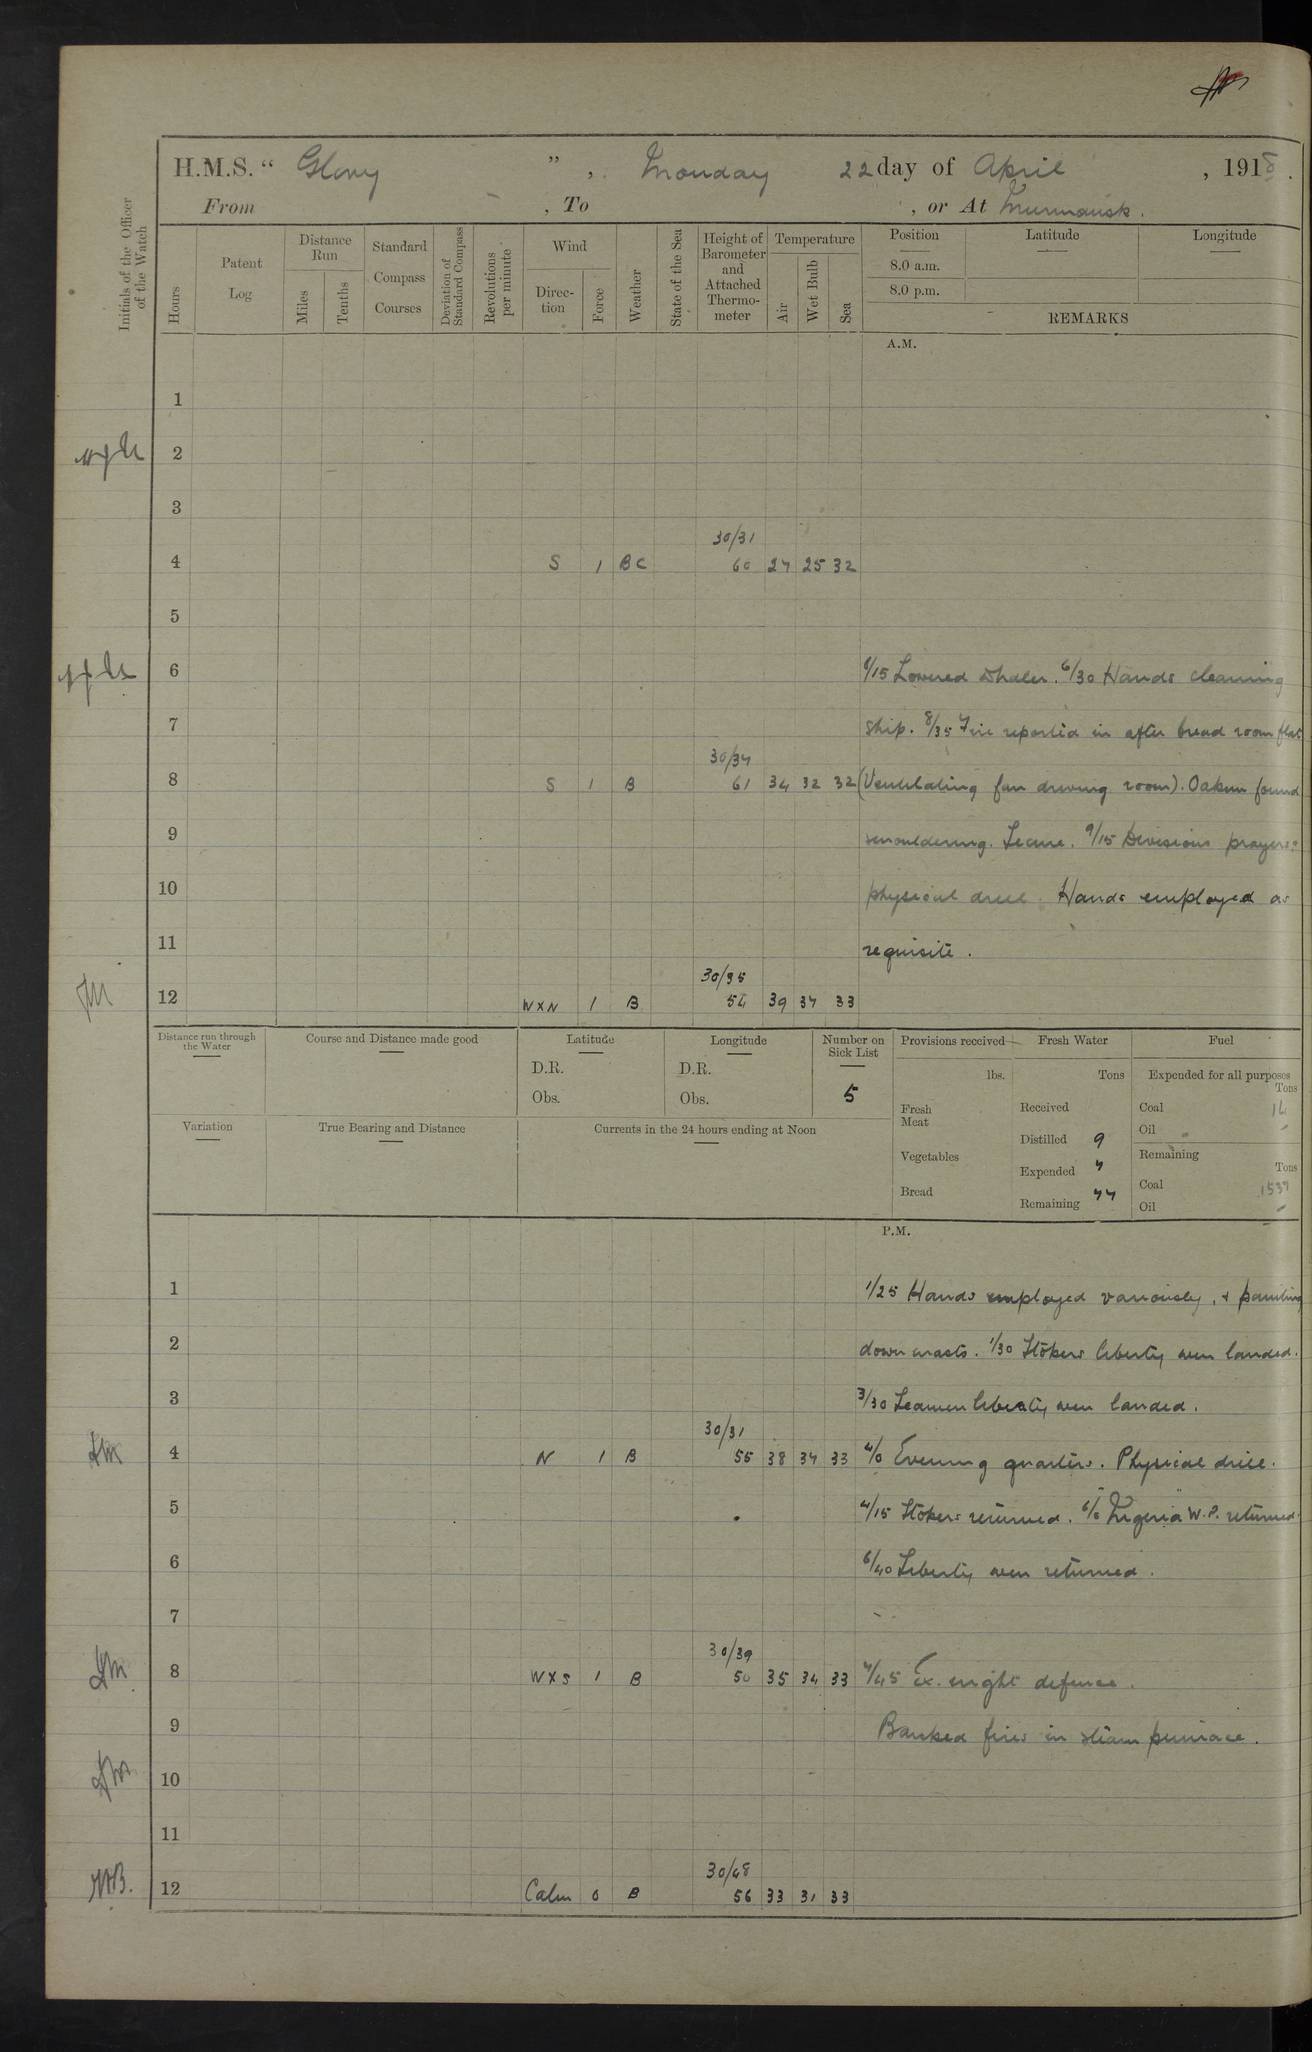 H.M.S. “ Glory ” , Monday 22 day of April , 1918 .
From - , To , or At Murmansk .
Initials of the Officer of the Watch
Hours
Patent Log
Distance Run
Miles
Tenths
Standard Compass Courses
Deviation of Standard Compass
Revolutions per minute
Wind
Direction
Force
Weather
State of the Sea
Height of Barometer and Attached Thermometer
Temperature
Air
Wet Bulb
Sea
Position
8.0 a.m.
8.0 p.m.
Latitude
Longitude
REMARKS
A.M.
1
2
3
30/31
4 S 1 BC 60 27 25 32
5
6 6/15 Lowered whaler. 6/30 Hands cleaning
7 ship. 8/35 Fire reported in after bread room flat
30/34
8 S 1 B 61 34 32 32 (Ventilating fan driving room). Oakum found
9 smouldering. Secure. 9/15 Divisions prayers
10 physical drill. Hands employed as
11 requisite .
30/35
12 WXN 1 B 54 39 37 33
Distance run through the Water
Course and Distance made good
Latitude
D.R.
Obs.
Longitude
D.R.
Obs.
Number on Sick List
5
Provisions received
lbs.
Fresh Meat
Vegetables
Bread
Fresh Water
Tons
Received
Distilled 9
Expended 7
Remaining 77
Fuel
Expended for all purposes
Tons
Coal 14
Oil -
Remaining
Tons
Coal 1537
Oil -
Variation
True Bearing and Distance
Currents in the 24 hours ending at Noon
P.M.
1 1/25 Hands employed variously, & painting
2 down masts. 1/30 Stokers liberty men landed.
3 3/30 Seamen liberty men landed.
30/31
4 N 1 B 55 38 34 33 4/0 Evening quarters. Physical drill.
5 4/15 Stokers returned. 6/0 "Nigeria" W.P. returned.
6 6/40 Liberty men returned.
7
30/39
8 WXS 1 B 50 35 34 33 7/45 Ex. night defence.
9 Banked fires in steam pinnace.
10
11
30/48
12 Calm 0 B 56 33 31 33